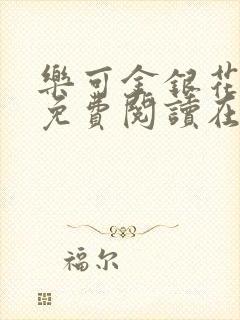 樂可金銀花
免費閱讀在
福尔